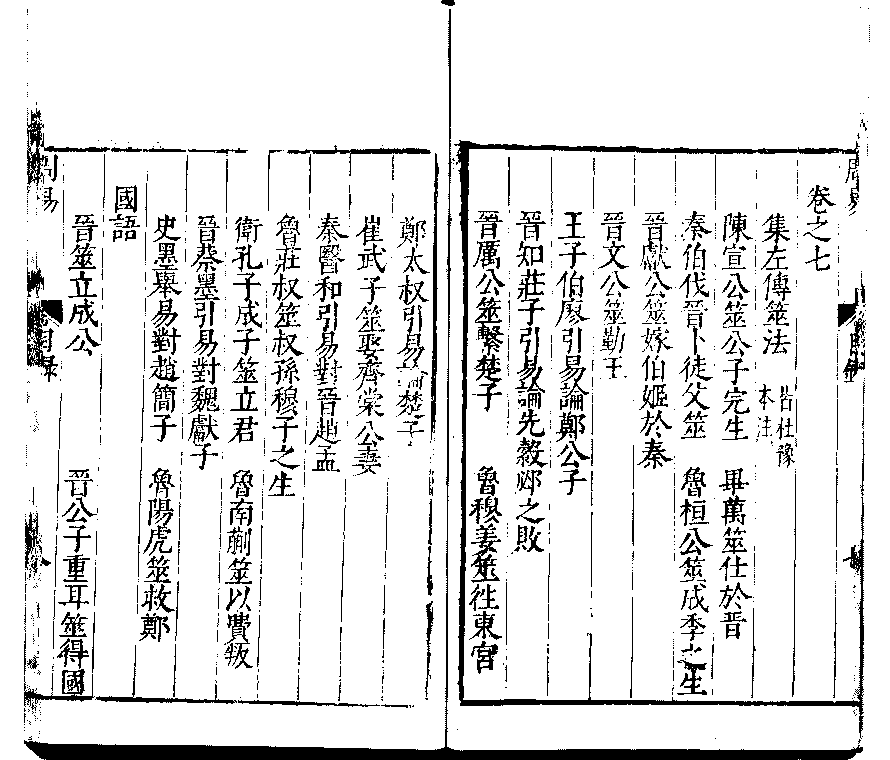 卷之七
集左傳筮法 皆杜豫本注
陳宣公筮公子完生 畢萬筮仕於晉
秦伯伐晉卜徒父筮 魯桓公筮成季之生
晉獻公筮嫁伯姬於秦
晉文公筮勤王
王子伯廖引易論鄭公子
晉知莊子引易論先縠邲之敗
晉厲公筮擊楚子 魯穆姜筮徃東宮
鄭太叔引易論楚子
崔武子筮娶齊棠公妻
秦醫和引易對晉趙孟
魯莊叔筮叔孫穆子之生
衛孔子成子筮立君 魯南蒯筮以費叛
晉蔡墨引易對魏獻子
史墨舉易對趙簡子 魯陽虎筮救鄭
國語
晉筮立成公 晉公子重耳筮得國
周易
目錄
八